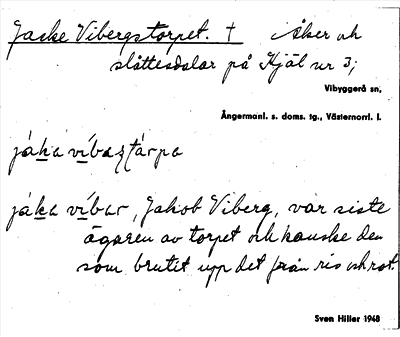 Jacke Vibergstorpet. † Åker och
slåttesdalar på Kjäl nr 3;
Vibyggerå sn,
Ångermanl. s. doms. tg., Västernorrl. l.
jáka víbaştárpa
jáka víbar, Jakob Viberg, var siste
ägaren av torpet och kanske den
som brutit upp det från ris och rot.
Sven Hiller 1948